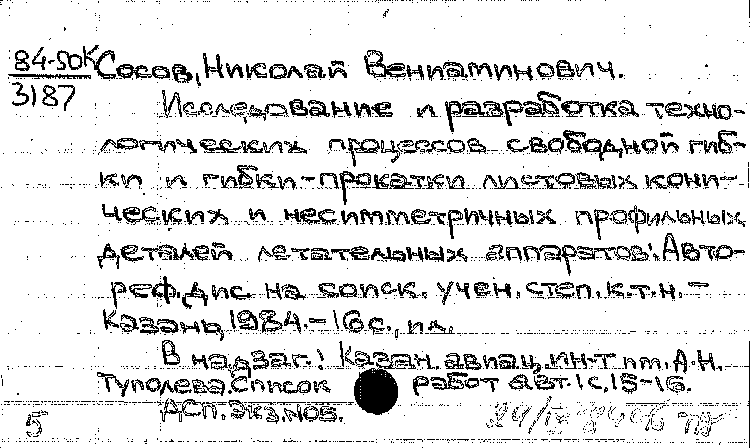 84-50К Сосов, Николай Вениаминович.
3187
Исследование и разработка техно-
логических процессов свободной гиб-
ки и гибки-прокатки листовых кони-
ческих и несимметричных профильных
деталей летательных аппаратов: Авто-
реф. дис. на соиск. учен. степ. к.т.н. -
Казань, 1984. - 16 с., ил.
В надзаг.: Казан. авиац. ин-т им. А.Н.
Туполева. Список работ авт. 1с. 15-16.
ДСП. Экз. №05.
5